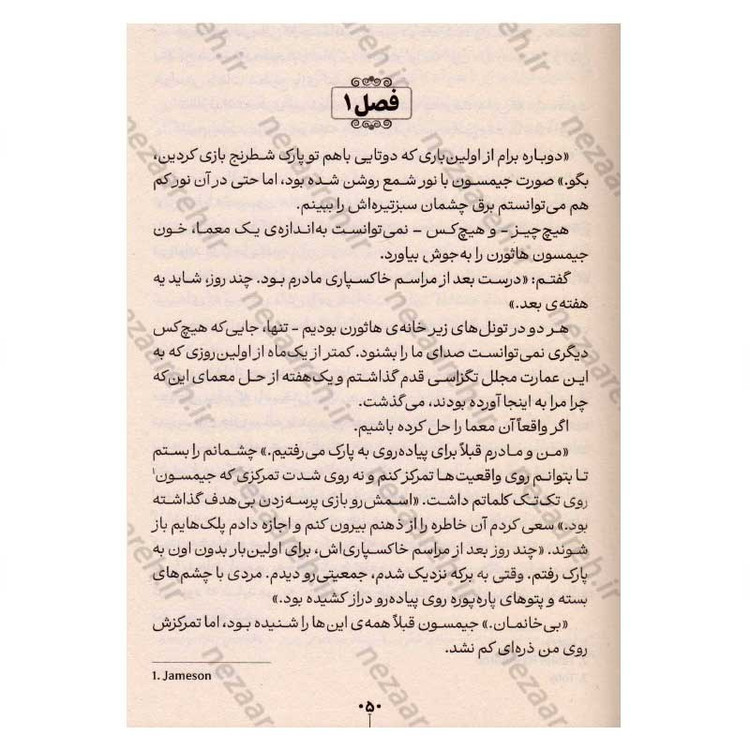 فصل ۱
«دوباره برام از اولین‌باری که دوتایی باهم تو پارک شطرنج بازی کردین،
بگو.» صورت جیمسون با نور شمع روشن شده بود، اما حتی در آن نور کم
هم می‌توانستم برق چشمان سبزتیره‌اش را ببینم.
هیچ‌چیز - و هیچ‌کس - نمی‌توانست به‌اندازه‌ی یک معما، خون
جیمسون هاثورن را به‌جوش بیاورد.
گفتم: «درست بعد از مراسم خاکسپاری مادرم بود. چند روز، شاید یه
هفته‌ی بعد.»
هر دو در تونل‌های زیر خانه‌ی هاثورن بودیم - تنها، جایی‌که هیچ‌کس
دیگری نمی‌توانست صدای ما را بشنود. کمتر از یک‌ماه از اولین روزی که به
این عمارت مجلل تگزاسی قدم گذاشتم و یک‌هفته از حل معمای این‌که
چرا مرا به اینجا آورده بودند، می‌گذشت.
اگر واقعاً آن معما را حل کرده باشیم.
«من و مادرم قبلاً برای پیاده‌روی به پارک می‌رفتیم.» چشمانم را بستم
تا بتوانم روی واقعیت‌ها تمرکز کنم و نه روی شدت تمرکزی که جیمسون۱
روی تک‌تک کلماتم داشت. «اسمش‌رو بازی پرسه‌زدن بی‌هدف گذاشته
بود.» سعی کردم آن خاطره را از ذهنم بیرون کنم و اجازه دادم پلک‌هایم باز
شوند. «چند روز بعد از مراسم خاکسپاری‌اش، برای اولین‌بار بدون اون به
پارک رفتم. وقتی به برکه نزدیک شدم، جمعیتی‌رو دیدم. مردی با چشم‌های
بسته و پتوهای پاره‌پوره روی پیاده‌رو دراز کشیده بود.»
«بی‌خانمان.» جیمسون قبلاً همه‌ی این‌ها را شنیده بود، اما تمرکزش
روی من ذره‌ای کم نشد.
1. Jameson
۰۵۰
nezaareh.ir